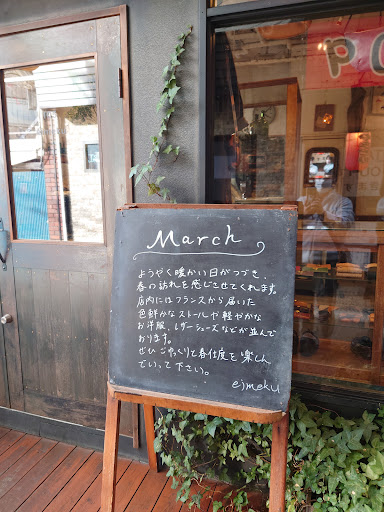 March
ようやく暖かい日がつづき、
春の訪れを感じさせてくれます。
店内にはフランスから届いた
色鮮かなストールや軽やかな
お洋服、レザーシューズなどが並んで
おります。
ぜひごゆっくりと春仕度を楽しん
でいって下さい。
ejmeku